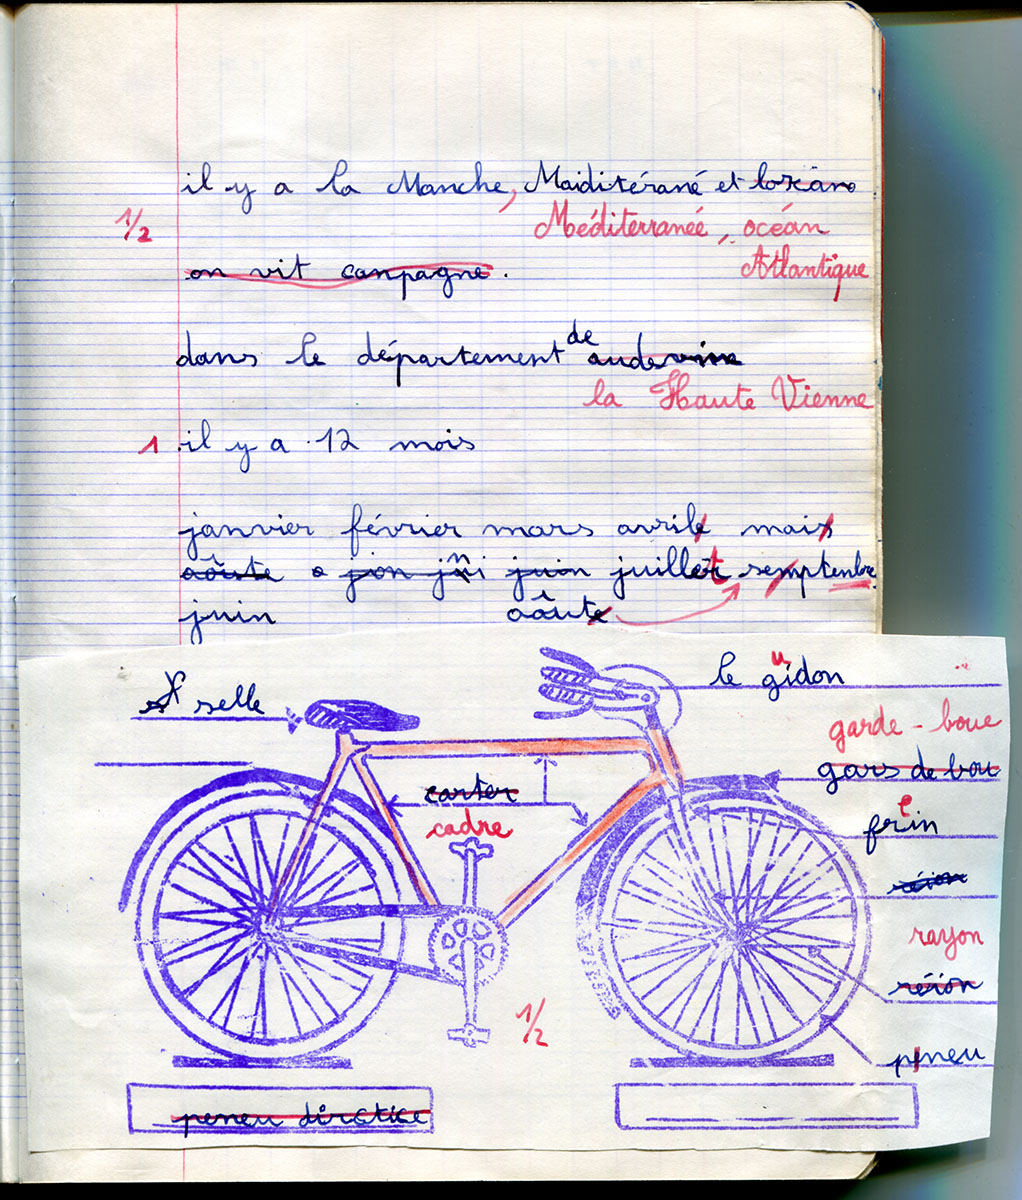 il y a la Manche, Maiditérané et lozéano
1/2
Méditerranée, océan
on vit canpagne.
Atlantique
dans le département de audevine
la Haute Vienne
1 il y a 12 mois
janvier février mars avrile mais
aôuste a jion jni juin juillet semptenbre
juin aôute
selle
le guidon
garde-boue
gars de bou
carter
frein
cadre
réion
rayon
réion
1/2
pneu
peneu dirctice